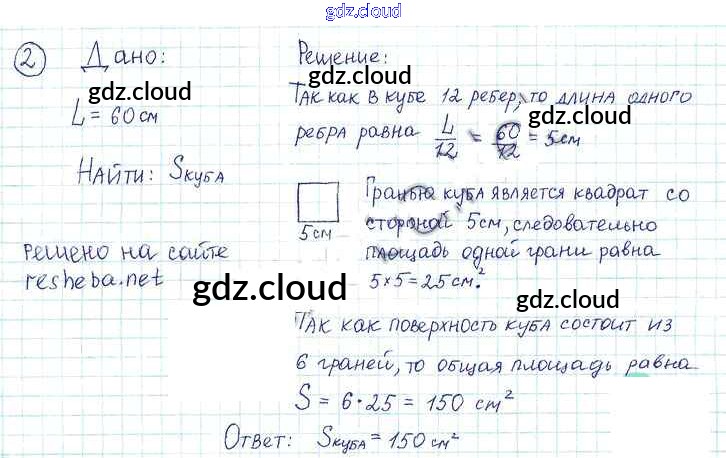 gdz.cloud
2 Дано: Решение:
gdz.cloud gdz.cloud
L = 60 см
Так как в кубе 12 ребер, то длина одного
gdz.cloud
ребра равна L/12 = 60/12 = 5см
Найти: Sкуба
Гранью куба является квадрат со
стороной 5см, следовательно
gdz.cloud
5см
площадь одной грани равна
5×5=25см².
решено на сайте
resheba.net
gdz.cloud gdz.cloud
Так как поверхность куба состоит из
6 граней, то общая площадь равна
S = 6·25 = 150 см²
Ответ: Sкуба = 150 см²